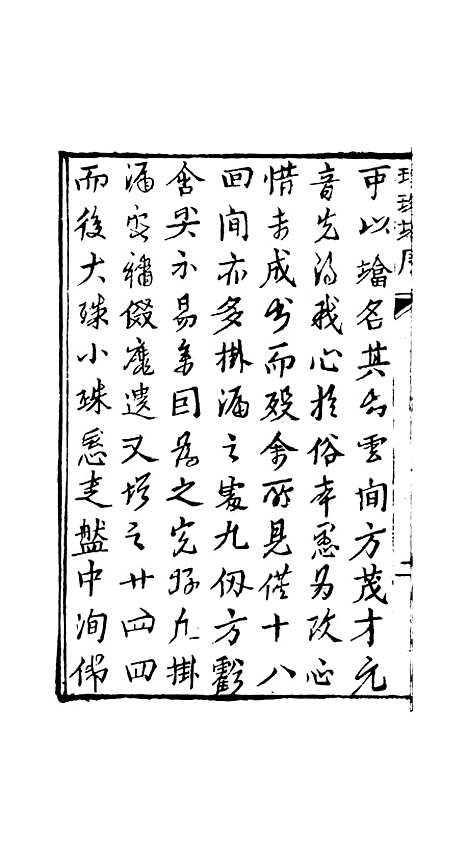 可以論名其出雲間方茂才元
音先得我心於俗本悉為改正
惜未成書而歿余所見僅十八
回間亦多掛漏之處九仞方虧
舍哭亦易集因為之完好凡掛
漏處補綴靡遺又增之廿四四
而後大珠小珠悉走盤中洵佛